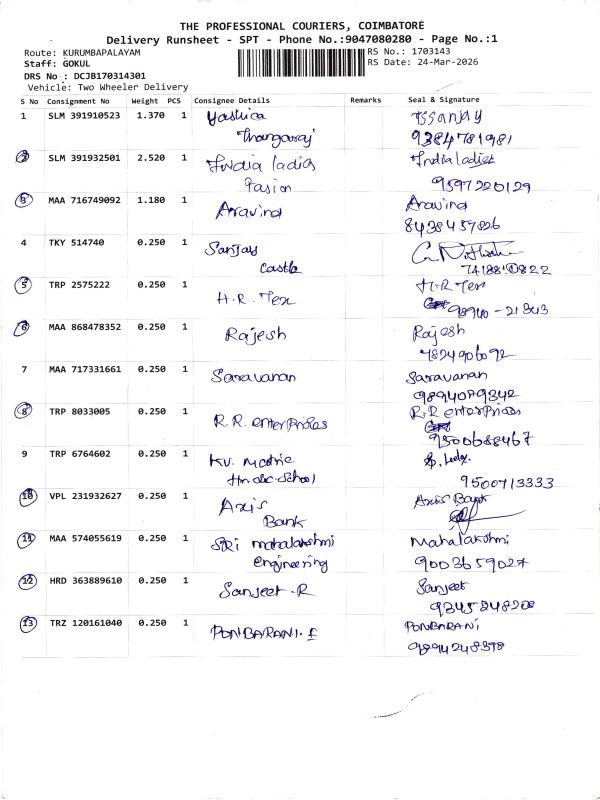 THE PROFESSIONAL COURIERS, COIMBATORE
Delivery Runsheet - SPT - Phone No.:9047080280 - Page No.:1
Route: KURUMBAPALAYAM RS No.: 1703143
Staff: GOKUL RS Date: 24-Mar-2026
DRS No : DCJB170314301
Vehicle: Two Wheeler Delivery
S No Consignment No Weight PCS Consignee Details Remarks Seal & Signature
1 SLM 391910523 1.370 1 Yashica
Thangaraj 9384781981
2 SLM 391932501 2.520 1 India ladies India ladies
Fasion 9597220129
3 MAA 716749092 1.180 1 Aravind Aravind
8438457826
4 TKY 514740 0.250 1 Sanjay
Castle
5 TRP 2575222 0.250 1 H.R. Tex H.R Tex
98940-21343
6 MAA 868478352 0.250 1 Rajesh Rajesh
7 MAA 717331661 0.250 1 Saravanan Saravanan
9894079342
8 TRP 8033005 0.250 1 R.R. enterprises R.R enterprises
9500688467
9 TRP 6764602 0.250 1 KV. Matric
Hr.sec.School 9500713333
10 VPL 231932627 0.250 1 Axis Axis Bank
Bank
11 MAA 574055619 0.250 1 SRI mahalakshmi Mahalakshmi
engineering 9003659027
12 HRD 363889610 0.250 1 Sanjeet.R Sanjeet
9345848208
13 TRZ 120161040 0.250 1 PONBARANI.E PONBARANI
9894248398